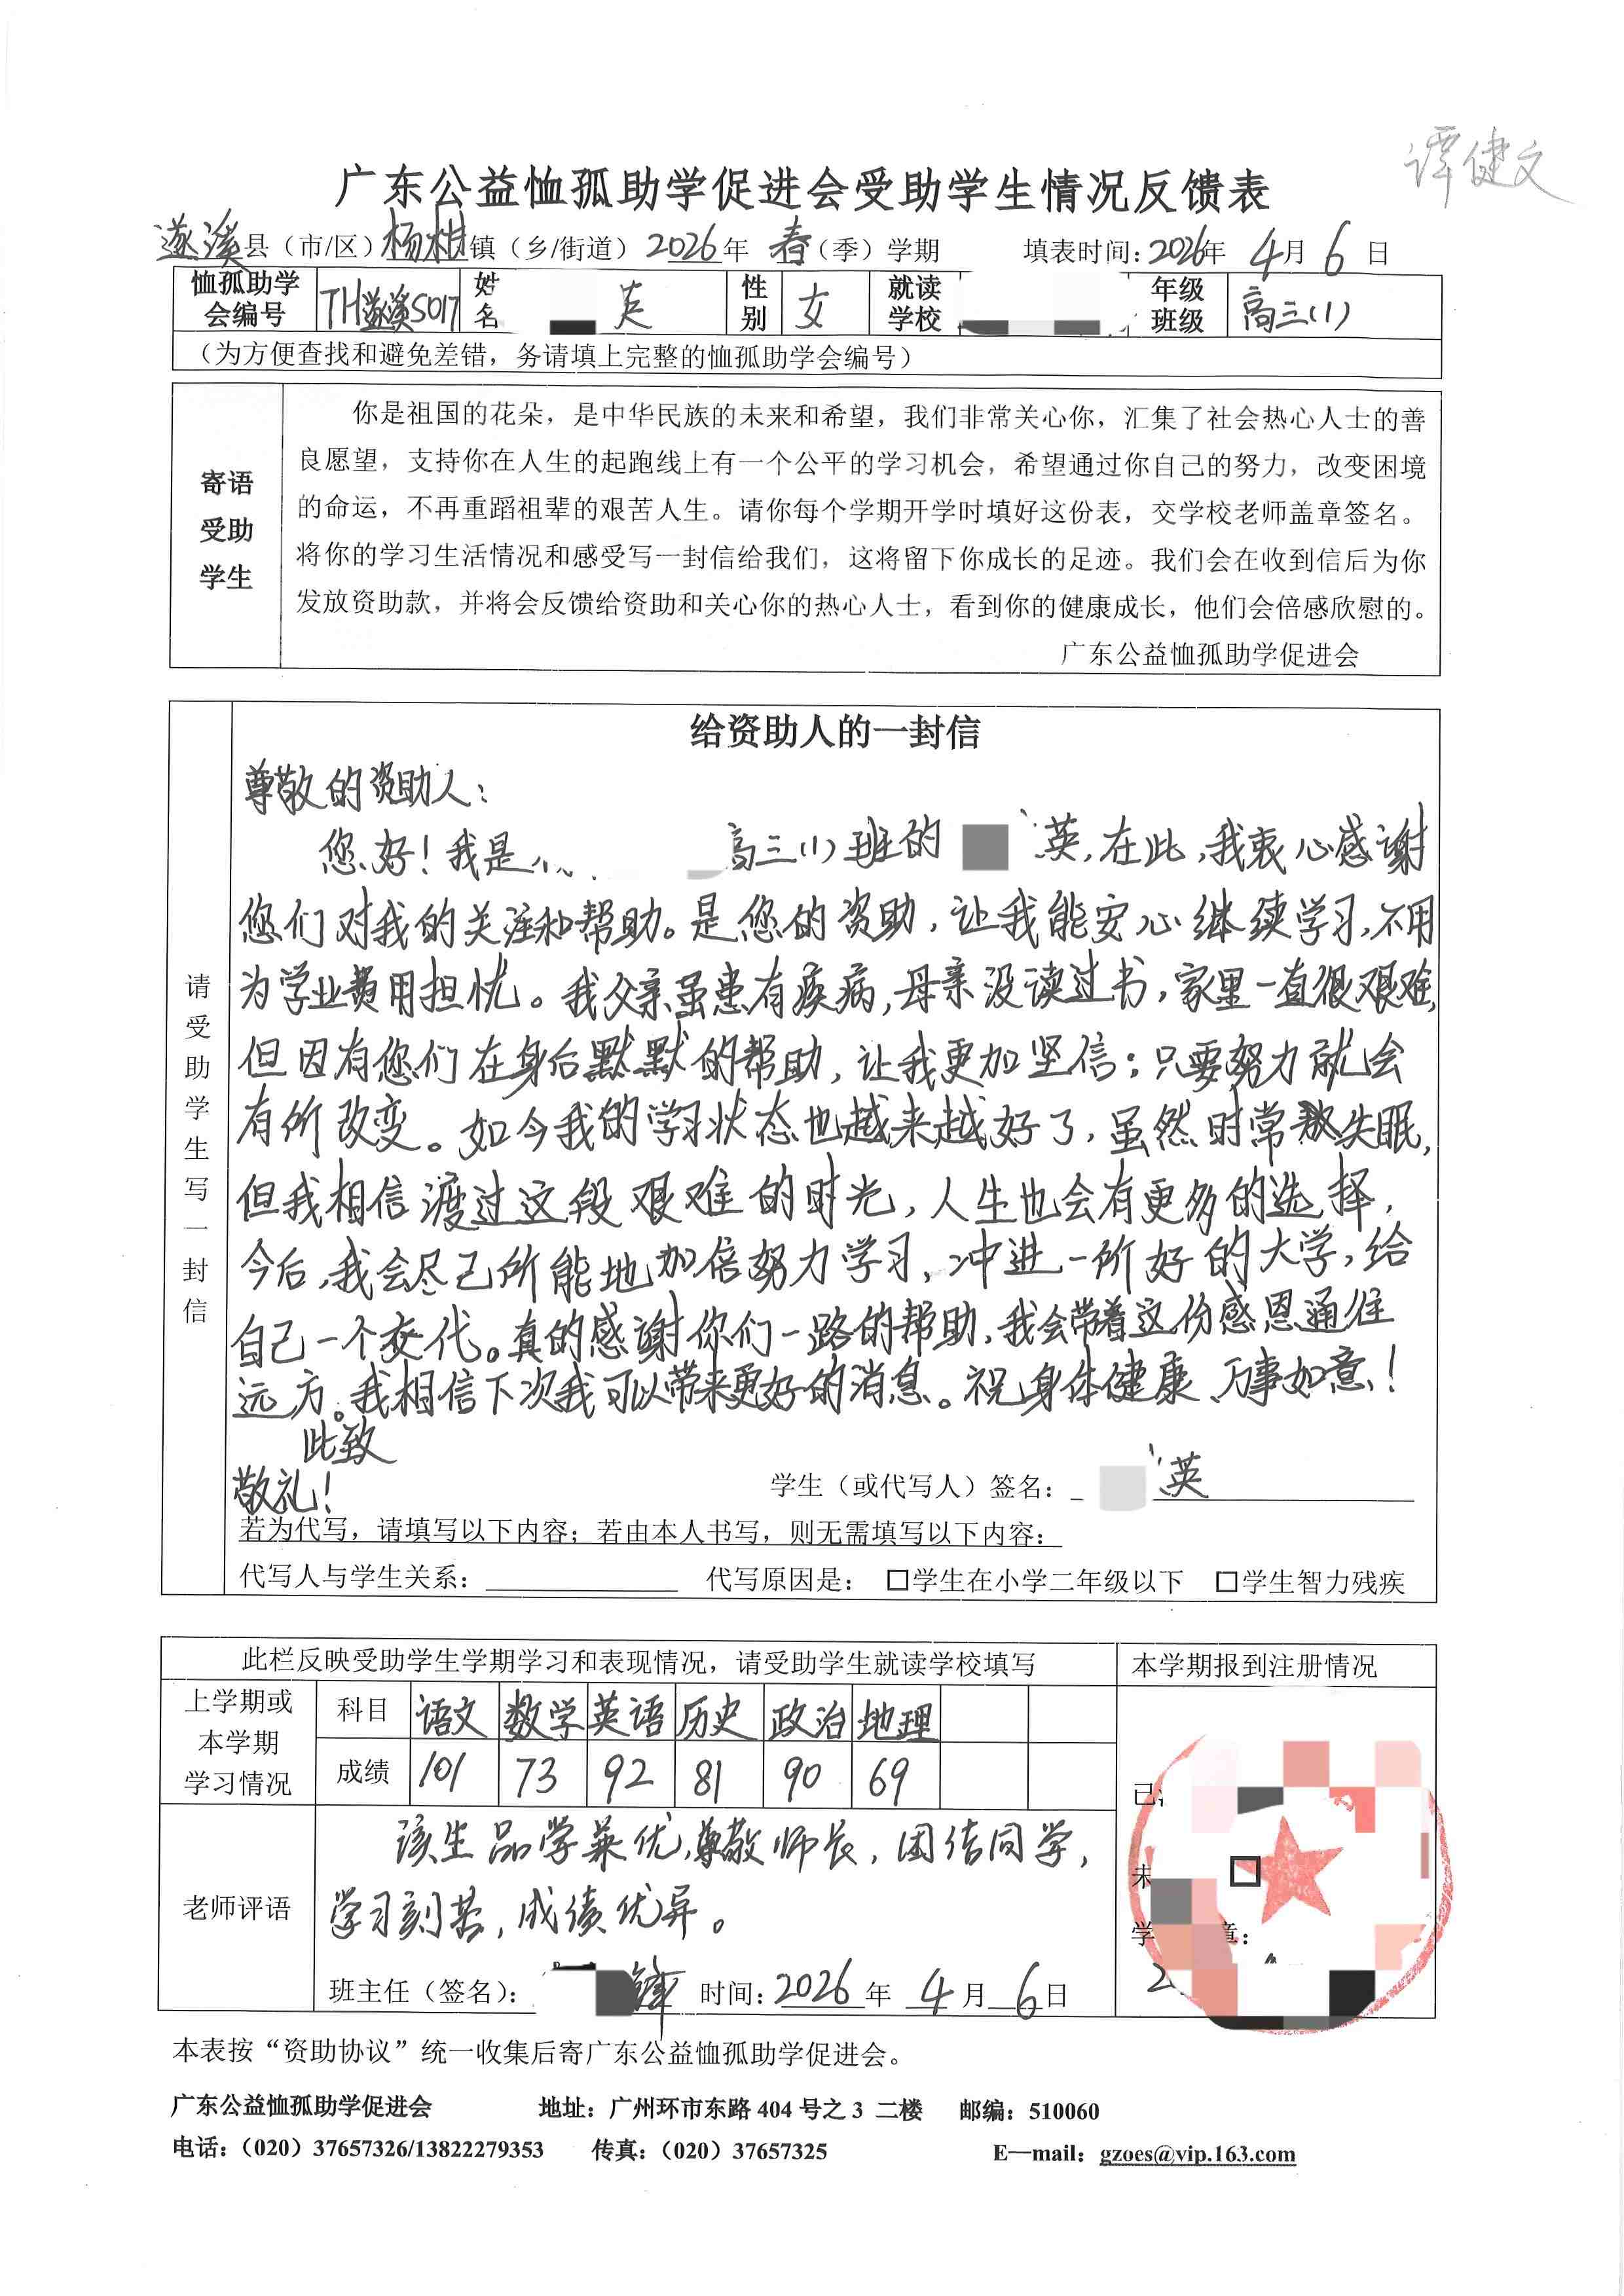 谭健文
广东公益恤孤助学促进会受助学生情况反馈表
遂溪县（市/区）杨柑镇（乡/街道）2026年 春（季）学期 填表时间：2026年 4月 6日
恤孤助学会编号 TH遂溪S017 姓名 英 性别 女 就读学校 年级班级 高三(1)
（为方便查找和避免差错，务请填上完整的恤孤助学会编号）
寄语
受助
学生
你是祖国的花朵，是中华民族的未来和希望，我们非常关心你，汇集了社会热心人士的善
良愿望，支持你在人生的起跑线上有一个公平的学习机会，希望通过你自己的努力，改变困境
的命运，不再重蹈祖辈的艰苦人生。请你每个学期开学时填好这份表，交学校老师盖章签名。
将你的学习生活情况和感受写一封信给我们，这将留下你成长的足迹。我们会在收到信后为你
发放资助款，并将会反馈给资助和关心你的热心人士，看到你的健康成长，他们会倍感欣慰的。
广东公益恤孤助学促进会
请受助学生写一封信
给资助人的一封信
尊敬的资助人：
您好！我是 高三(1)班的 英，在此，我衷心感谢
您们对我的关注和帮助。是您的资助，让我能安心继续学习，不用
为学业费用担忧。我父亲虽患有疾病，母亲没读过书，家里一直很艰难，
但因有您们在身后默默的帮助，让我更加坚信：只要努力就会
有所改变。如今我的学习状态也越来越好了，虽然时常失眠，
但我相信渡过这段艰难的时光，人生也会有更多的选择，
今后，我会尽己所能地加倍努力学习，冲进一所好的大学，给
自己一个交代。真的感谢你们一路的帮助，我会带着这份感恩通往
远方。我相信下次我可以带来更好的消息。祝身体健康、万事如意！
此致
敬礼！
学生（或代写人）签名： 英
若为代写，请填写以下内容；若由本人书写，则无需填写以下内容：
代写人与学生关系： 代写原因是： □学生在小学二年级以下 □学生智力残疾
此栏反映受助学生学期学习和表现情况，请受助学生就读学校填写 本学期报到注册情况
上学期或
本学期
学习情况
科目 语文 数学 英语 历史 政治 地理
成绩 101 73 92 81 90 69
已
未 □
学 章：
2
老师评语
该生品学兼优，尊敬师长，团结同学，
学习刻苦，成绩优异。
班主任（签名）： 锋 时间：2026年 4月 6日
本表按“资助协议”统一收集后寄广东公益恤孤助学促进会。
广东公益恤孤助学促进会 地址：广州环市东路 404 号之 3 二楼 邮编：510060
电话：（020）37657326/13822279353 传真：（020）37657325 E—mail：gzoes@vip.163.com